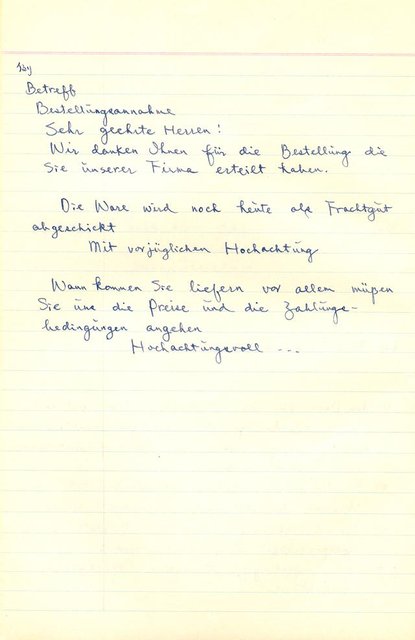 Betreff
Bestellungsannahme
Sehr geehrte Herren!
Wir danken Ihnen für die Bestellung die
Sie unserer Firma erteilt haben.
Die Ware wird noch heute als Frachtgut
abgeschickt
Mit vorzüglichen Hochachtung
Wann können Sie liefern vor allem müßen
Sie uns die Preise und die Zahlungs-
bedingungen angehen
Hochachtungsvoll ...